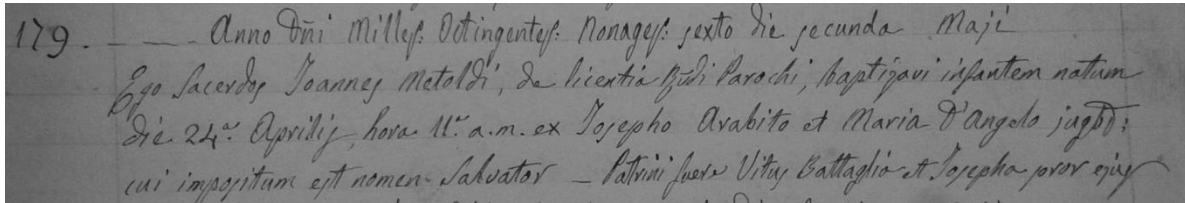 179. - Anno Dñi Milles: Octingentes: Nonages: sexto die secunda Maji
Ego Sacerdos Joannes Metoldi, de licentia Rñdi Parochi, baptizavi infantem natum
die 24.a Aprilis, hora 11.a a.m. ex Josepho Arabito et Maria D'Angelo jugbđ:
cui impositum est nomen Salvator - Patrini fuere Vitus Battaglia et Josepha soror ejus